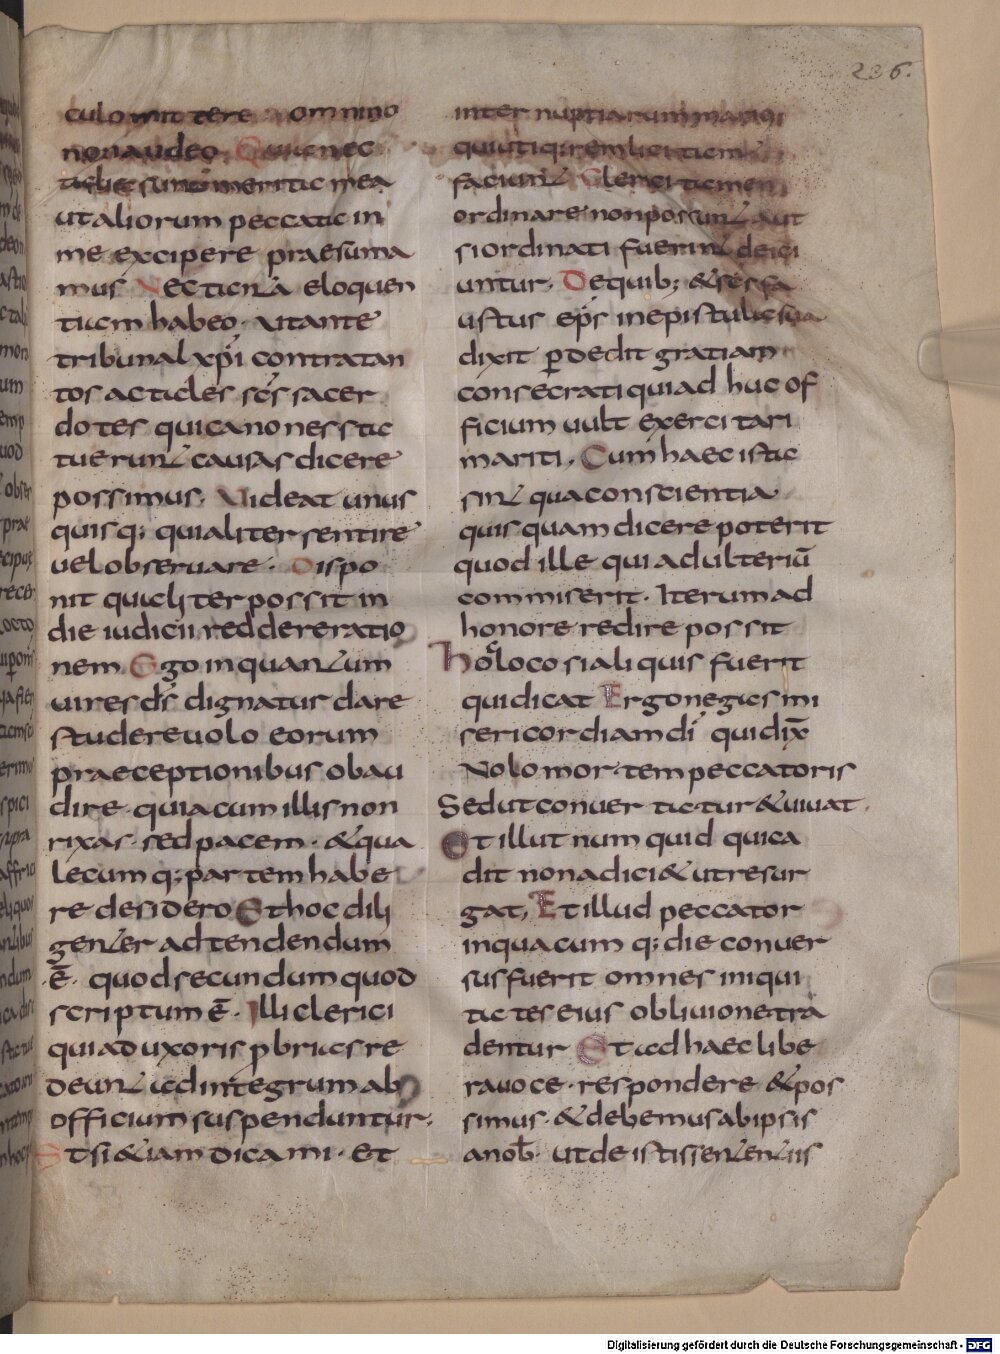 236.
culo mittere omnino
non audeo. Quia nec
tales sunt merita mea
ut aliorum peccata in
me excipere praesuma
mus Nec tanta eloquen
tiam habeo. ut ante
tribunal xp̄i contra tan
tos ac tales sc̄s sacer
dotes qui canones sta
tuerunt causas dicere
possimus. Uideat unus
quisq; qualiter sentire
uel obseruare. Dispo
nit qualiter possit in
die iudicii reddere ratio
nem Ego in quantum
uires ds̄ dignatus dare
studere uolo eorum
praeceptionibus obau
dire. quia cum illis non
rixas. sed pacem. & qua
lecumq; partem habe
re desidero Et hoc dili
genter adtendendum
ē. quod secundum quod
scriptum ē. Illi clerici
qui ad uxoris p̄bri ac re
deunt ad integrum ab
officium suspenduntur.
Etsi &iam dicam i. et
inter nuptiarum
faciunt Clerici tamen
ordinare non possunt aut
si ordinati fuerint deici
untur. De quib; & sc̄s fa
ustus ep̄s in epistula sua
dixit p̄dedit gratiam
consecrati qui ad huc of
ficium uult exercitari
mariti. Cum haec ista
sint qua conscientia
quisquam dicere poterit
quod ille qui adulteriū
commiserit. Iterum ad
honore redire possit
Hoc loco si aliquis fuerit
qui dicat Ergo negas mi
sericordiam dī qui dix̄
Nolo mortem peccatoris
Sed ut conuertatur & uiuat.
Et illut numquid qui ca
dit non adici& ut resur
gat. Et illud peccator
in quacumq; die conuer
sus fuerit omnes iniqui
tates eius obliuione tra
dentur Et ad haec libe
ra uoce. respondere & pos
simus. & debemus ab ipsis
a nob̄. Ut de istis sententiis
Digitalisierung gefördert durch die Deutsche Forschungsgemeinschaft - DFG